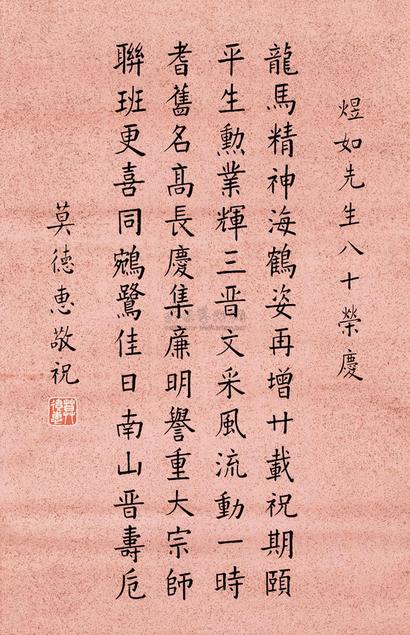 煜如先生八十榮慶
龍馬精神海鶴姿再增廿載祝期頤
平生勲業輝三晋文采風流動一時
耆舊名髙長慶集亷明譽重大宗師
聯班更喜同鵷鷺佳日南山晋壽卮
莫德惠敬祝
莫德惠